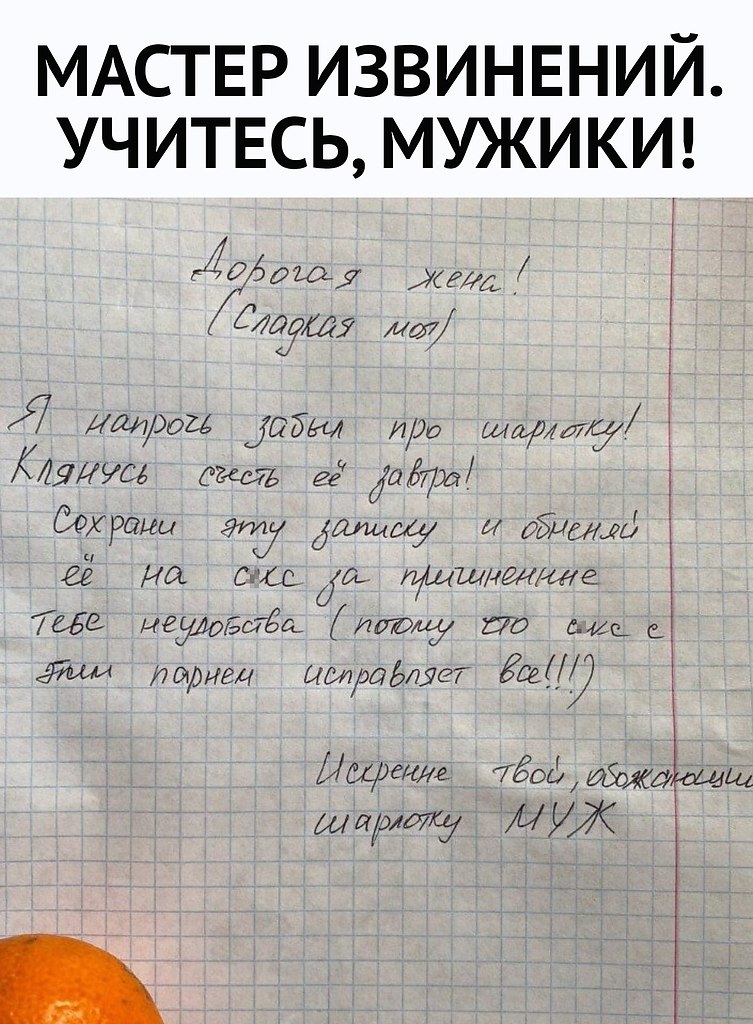 МАСТЕР ИЗВИНЕНИЙ.
УЧИТЕСЬ, МУЖИКИ!
Дорогая жена!
(Сладкая моя)
Я напрочь забыл про шарлотку!
Клянусь съесть её завтра!
Сохрани эту записку и обменяй
её на с кс за причиненные
тебе неудобства (потому что с кс с
этим парнем исправляет все!!!)
Искренне твой, обожающий
шарлотку МУЖ